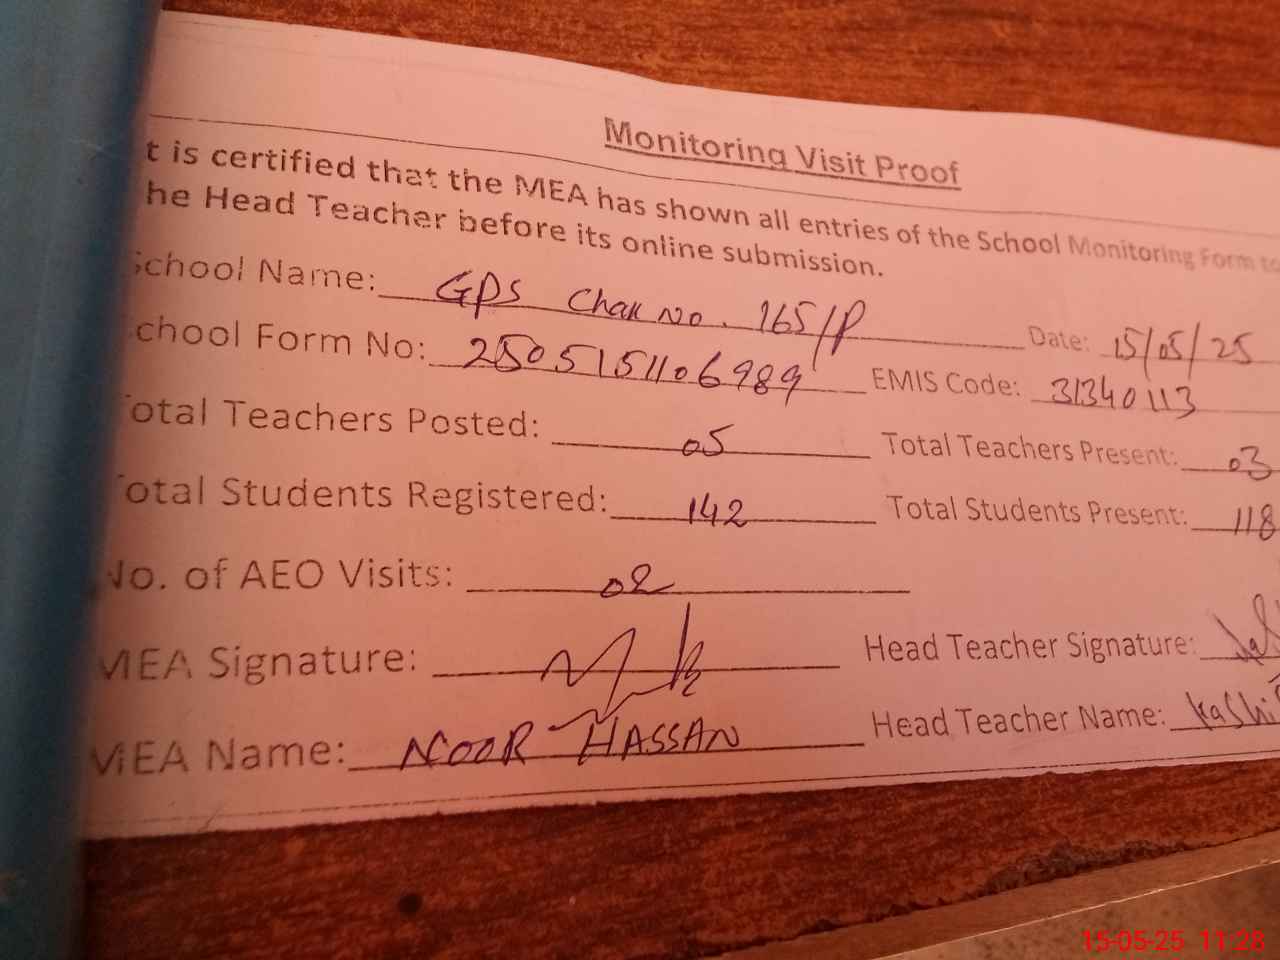 Monitoring Visit Proof
t is certified that the MEA has shown all entries of the School Monitoring Form to
he Head Teacher before its online submission.
School Name: GPS Chak No. 165/P Date: 15/05/25
chool Form No: 2505151106989 EMIS Code: 31340113
otal Teachers Posted: 05 Total Teachers Present: 03
otal Students Registered: 142 Total Students Present: 118
No. of AEO Visits: 02
MEA Signature: Head Teacher Signature:
MEA Name: NOOR HASSAN Head Teacher Name: Kashi
15-05-25 11:28